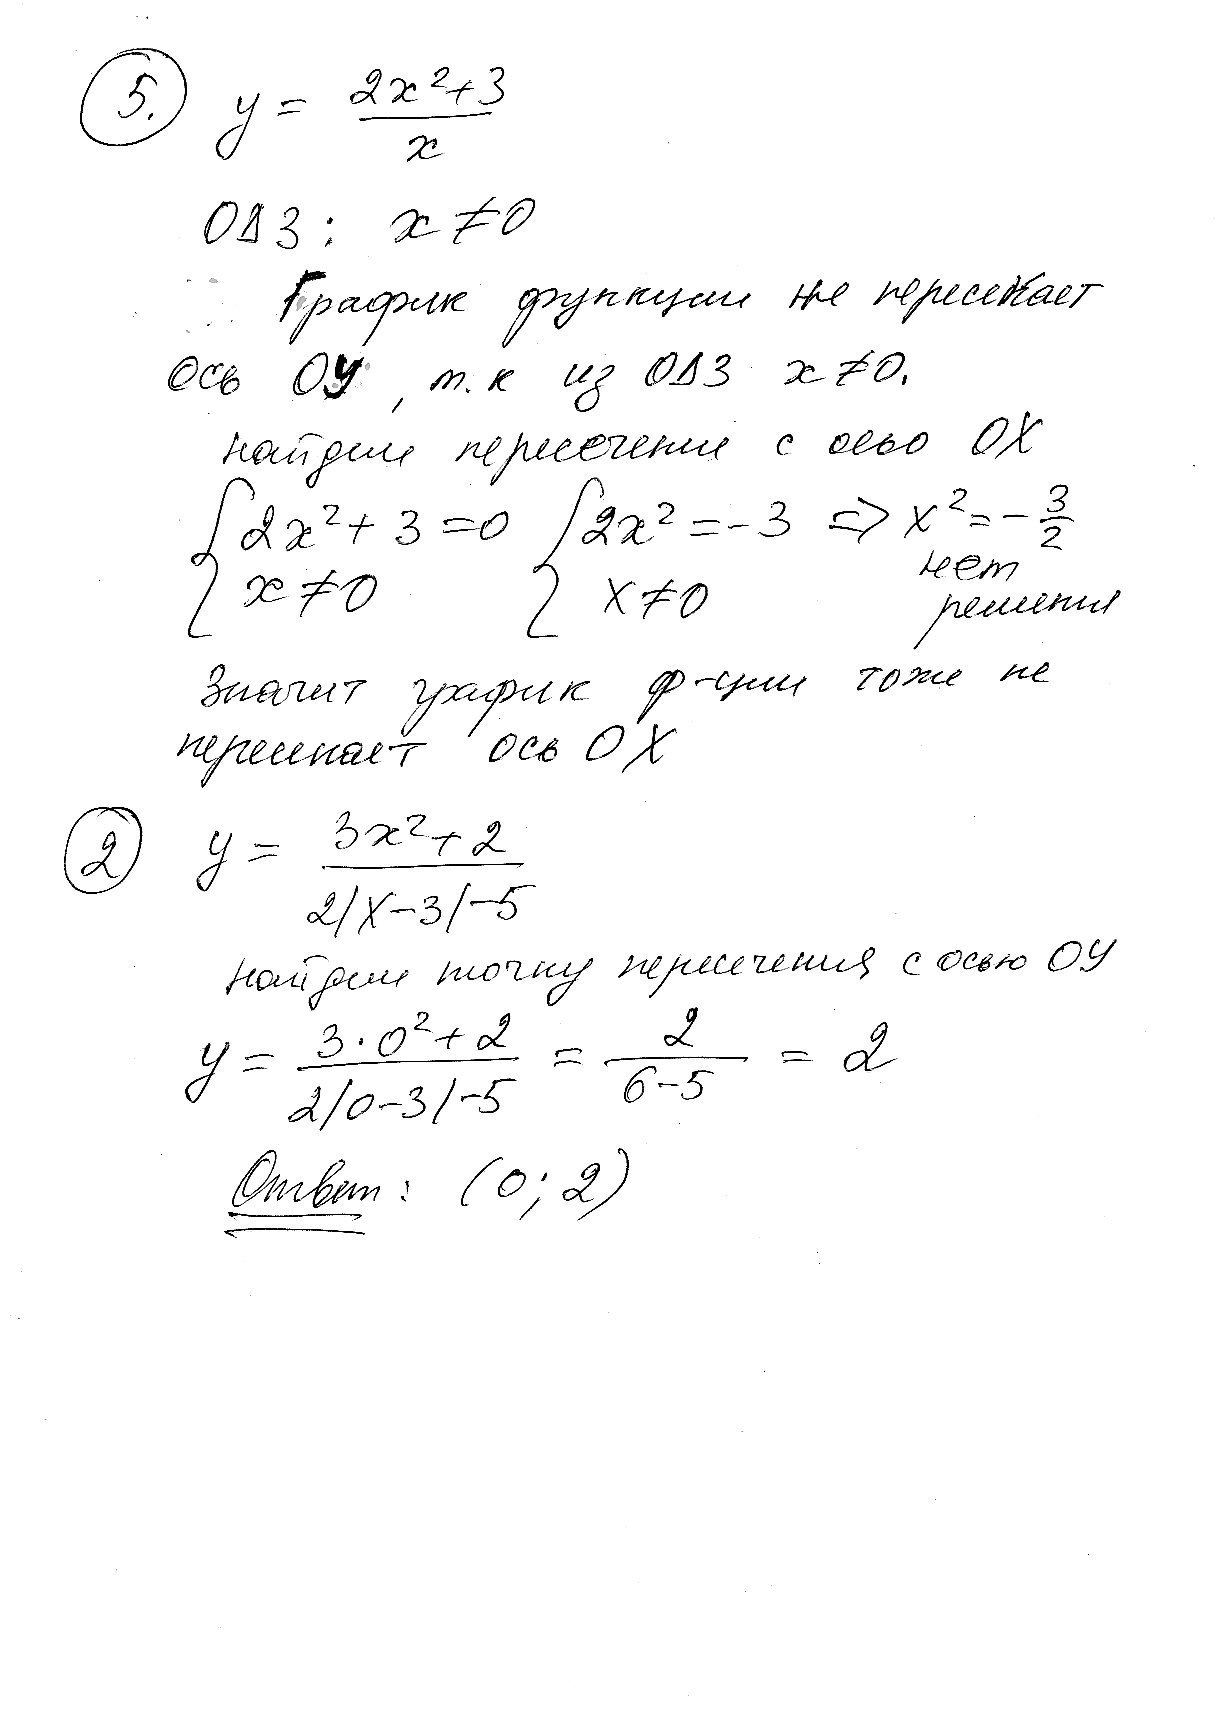 5. y = (2x²+3)/x
ОДЗ: x≠0
График функции не пересекает
ось ОУ, т.к из ОДЗ x≠0.
найдем пересечение с осью ОХ
{2x²+3=0 {2x²=-3 => x²=-3/2
{x≠0 {x≠0 нет
решения
Значит график ф-ции тоже не
пересекает ось ОХ
2 y = (3x²+2)/(2|x-3|-5)
найдем точку пересечения с осью ОУ
y = (3·0²+2)/(2|0-3|-5) = 2/(6-5) = 2
Ответ: (0;2)